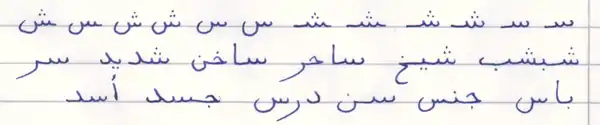 سـ سـ شـ شـ ـشـ ـشـ ـسـ س س ش ش ـس ـس ـش
شبشب شيخ ساحر ساخن شديد سر
باس جنس سن درس جسد أسد